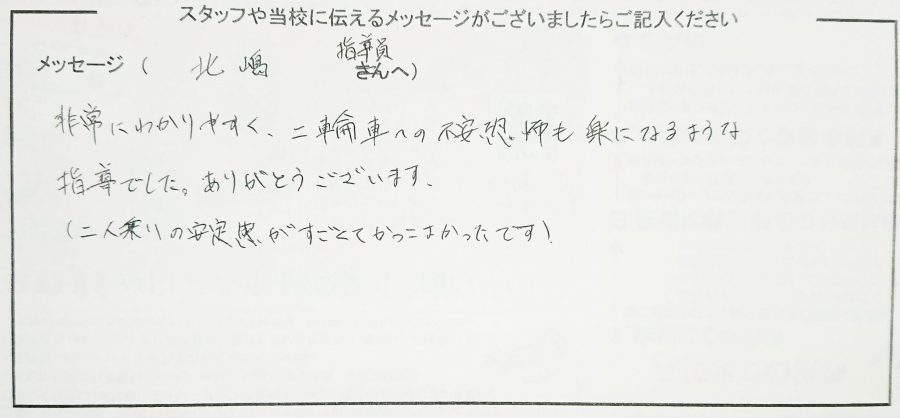 スタッフや当校に伝えるメッセージがございましたらご記入ください
メッセージ（ 北嶋 指導員 さんへ）
非常にわかりやすく、二輪車への不安、恐怖も楽になるような
指導でした。ありがとうございます。
（二人乗りの安定感がすごくてかっこよかったです）